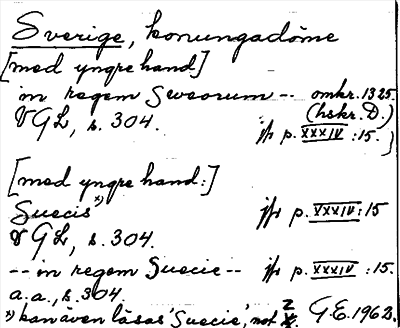 Sverige, konungadöme
[med yngre hand]
in regem Sweorum -- omkr. 1325.
(hskr. D.)
VGL, s. 304. jfr p. XXXIV :15.)
[med yngre hand:]
Suecis*) jfr p. XXXIV :15
VGL, s. 304.
-- in regem Suecie -- jfr p. XXXIV :15.
a.a., s. 304.
*) kan även läsas 'Suecie', not 2 G.E. 1962.